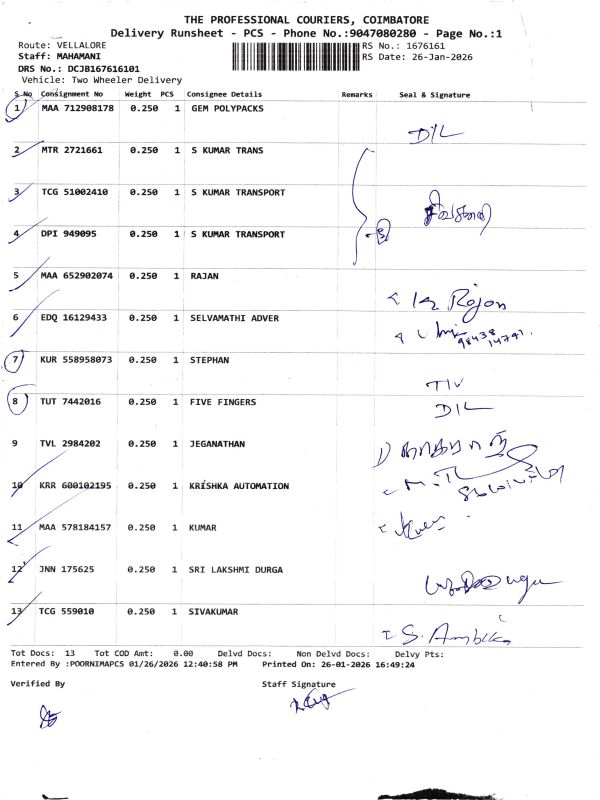 THE PROFESSIONAL COURIERS, COIMBATORE
Delivery Runsheet - PCS - Phone No.:9047080280 - Page No.:1
Route: VELLALORE
RS No.: 1676161
Staff: MAHAMANI
RS Date: 26-Jan-2026
DRS No.: DCJB167616101
Vehicle: Two Wheeler Delivery
S No Consignment No Weight PCS Consignee Details Remarks Seal & Signature
1 MAA 712908178 0.250 1 GEM POLYPACKS
D/L
2 MTR 2721661 0.250 1 S KUMAR TRANS
3 TCG 51002410 0.250 1 S KUMAR TRANSPORT
4 DPI 949095 0.250 1 S KUMAR TRANSPORT
5 MAA 652902074 0.250 1 RAJAN
Rajan
6 EDQ 16129433 0.250 1 SELVAMATHI ADVER
98438
14741
7 KUR 558958073 0.250 1 STEPHAN
8 TUT 7442016 0.250 1 FIVE FINGERS
D/L
9 TVL 2984202 0.250 1 JEGANATHAN
10 KRR 600102195 0.250 1 KRISHKA AUTOMATION
11 MAA 578184157 0.250 1 KUMAR
12 JNN 175625 0.250 1 SRI LAKSHMI DURGA
13 TCG 559010 0.250 1 SIVAKUMAR
S. Ambika
Tot Docs: 13 Tot COD Amt: 0.00 Delvd Docs: Non Delvd Docs: Delvy Pts:
Entered By :POORNIMAPCS 01/26/2026 12:40:58 PM Printed On: 26-01-2026 16:49:24
Verified By Staff Signature